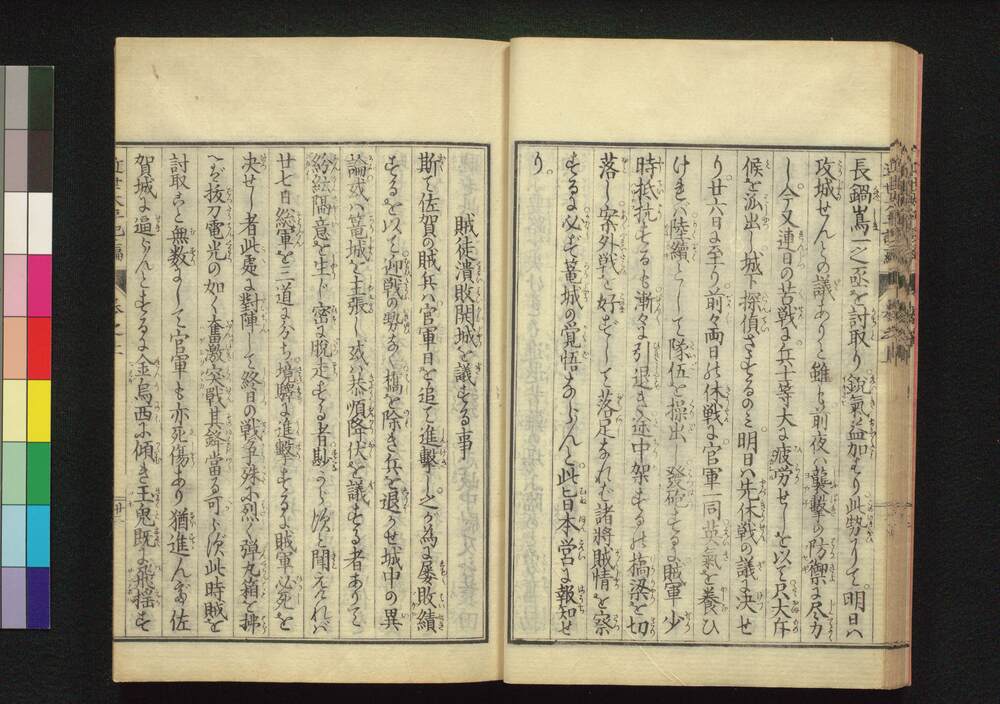 長鍋嶌一之丞を討取り鋭氣益加はり此勢りて明日ハ
攻城せんとの議ありと雖も前夜ハ襲撃の防禦に尽力
し今又連日の苦戦に兵卒等大に疲労せしを以て尺大斥
候を派出し城下探偵さするのミ明日ハ先休戦の議に决せ
り廿六日に至り前々両日の休戦に官軍一同英氣を養ひ
けれバ陸續として隊伍を操出し發砲するに賊軍ハ少
時抵抗するも漸々に引退き途中架する所の橋梁を切
落し案外戦を好ずして落足なれバ諸將賊情を察
するに必ず篭城の覚悟あらんと此旨日本営に報知せ
り。
賊徒潰敗開城を議する事
斯て佐賀の賊兵ハ官軍日を追て進撃し之が為に屡敗績
するを以て迎戦の勢なく橋を除き兵を退かせ城中の異
論或ハ篭城を主張し或ハ恭順降伏を議する者ありて
紛紜隔意を生じ密に脱走する者尠からずと聞えけれバ
廿七日総軍を三道に分ち堺驛に進撃するに賊軍必死を
决せし者此処に對陣して終日の戦争殊に烈く弾丸箱を掃
へバ抜刀電光の如く奮激突戦其鋒當る可らず此時賊を
討取こと無数にして官軍も亦死傷あり猶進んで佐
賀城に逼らんとするに金烏西に傾き玉兎既に飛揺す